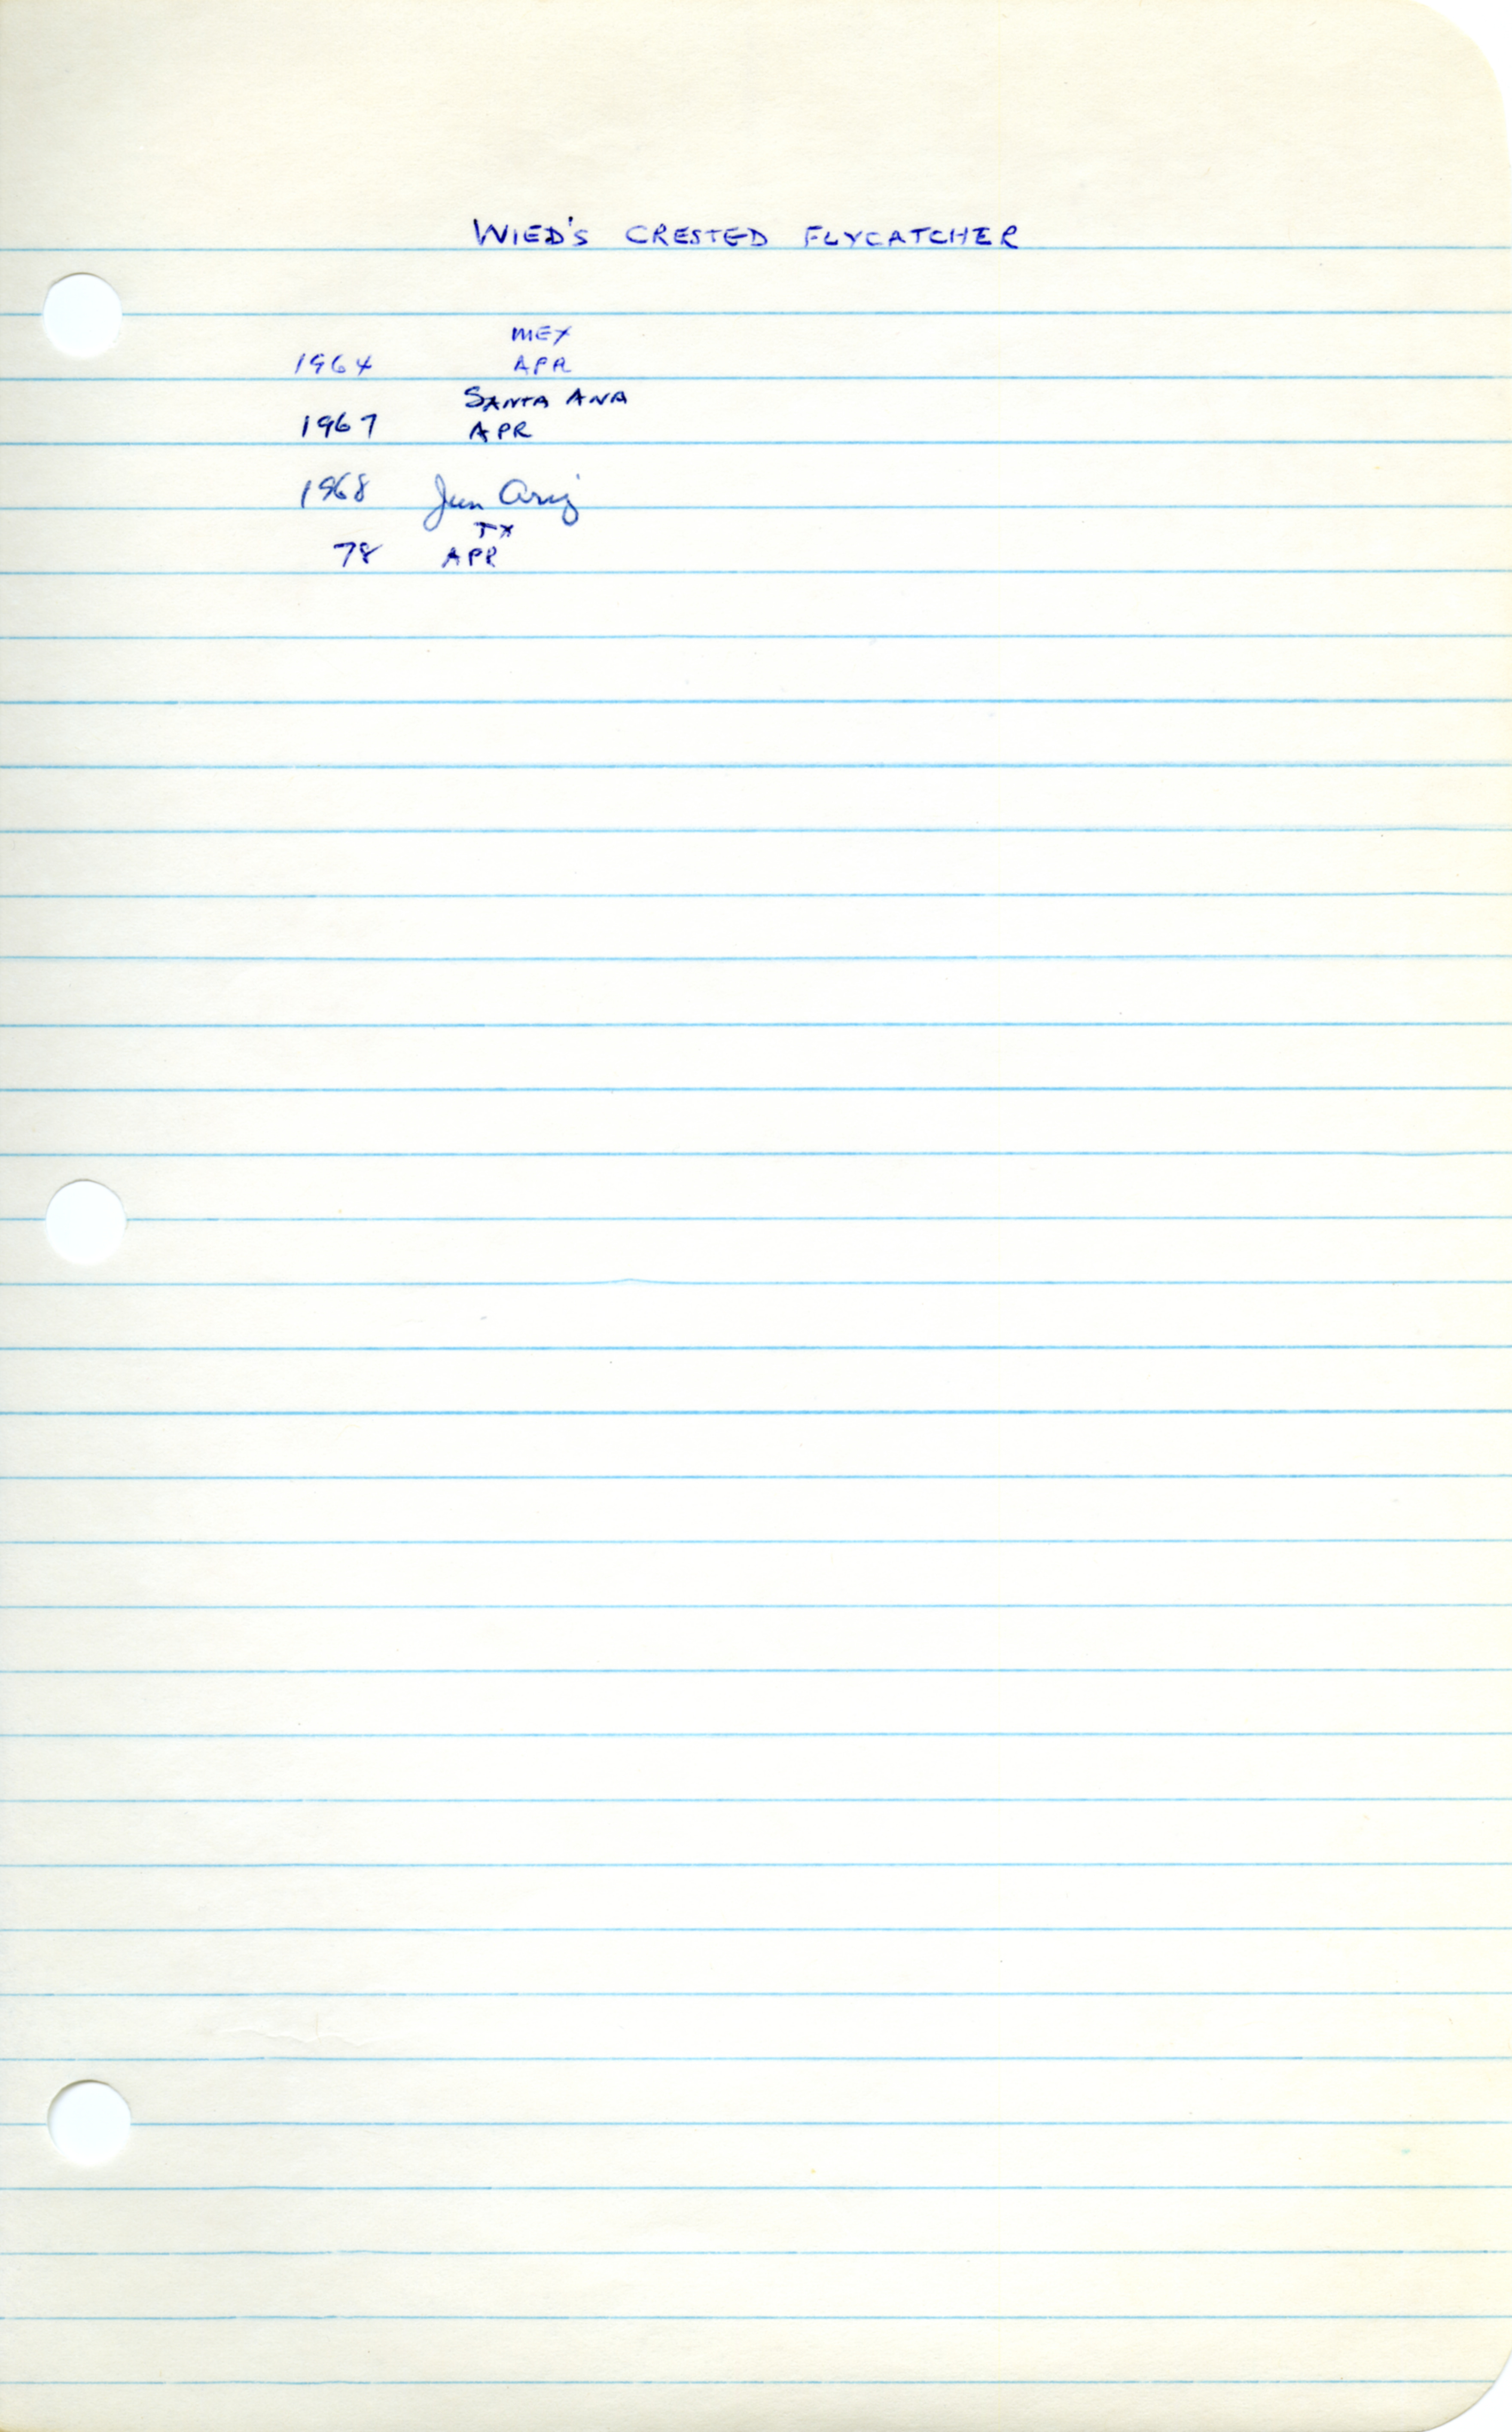 WIED'S CRESTED FLYCATCHER
MEX
1964 APR
SANTA ANA
1967 APR
1968 Jun Ariz
TX
78 APR